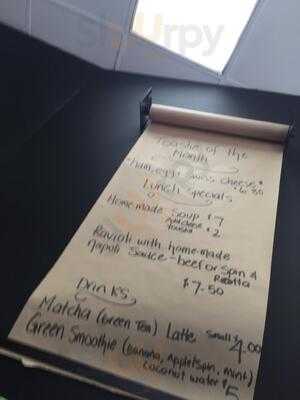 Toastie of the
Month
"ham, egg, swiss cheese" $6.50
Lunch Specials
Home made Soup $7
Add cheese
Toastie $2
Ravioli with home-made
Napoli Sauce - beef or Spin &
Ricotta
$7.50
Drinks
Matcha (Green Tea) Latte Small $4.00
Green Smoothie (banana, Apple, Spin, Mint,
coconut water $5